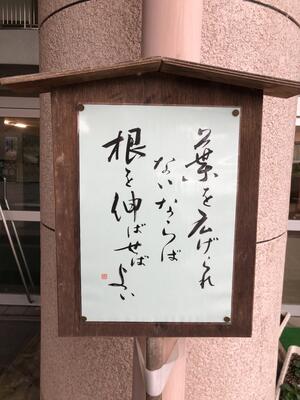 葉を広げられ
ないならば
根を伸ばせば
よい